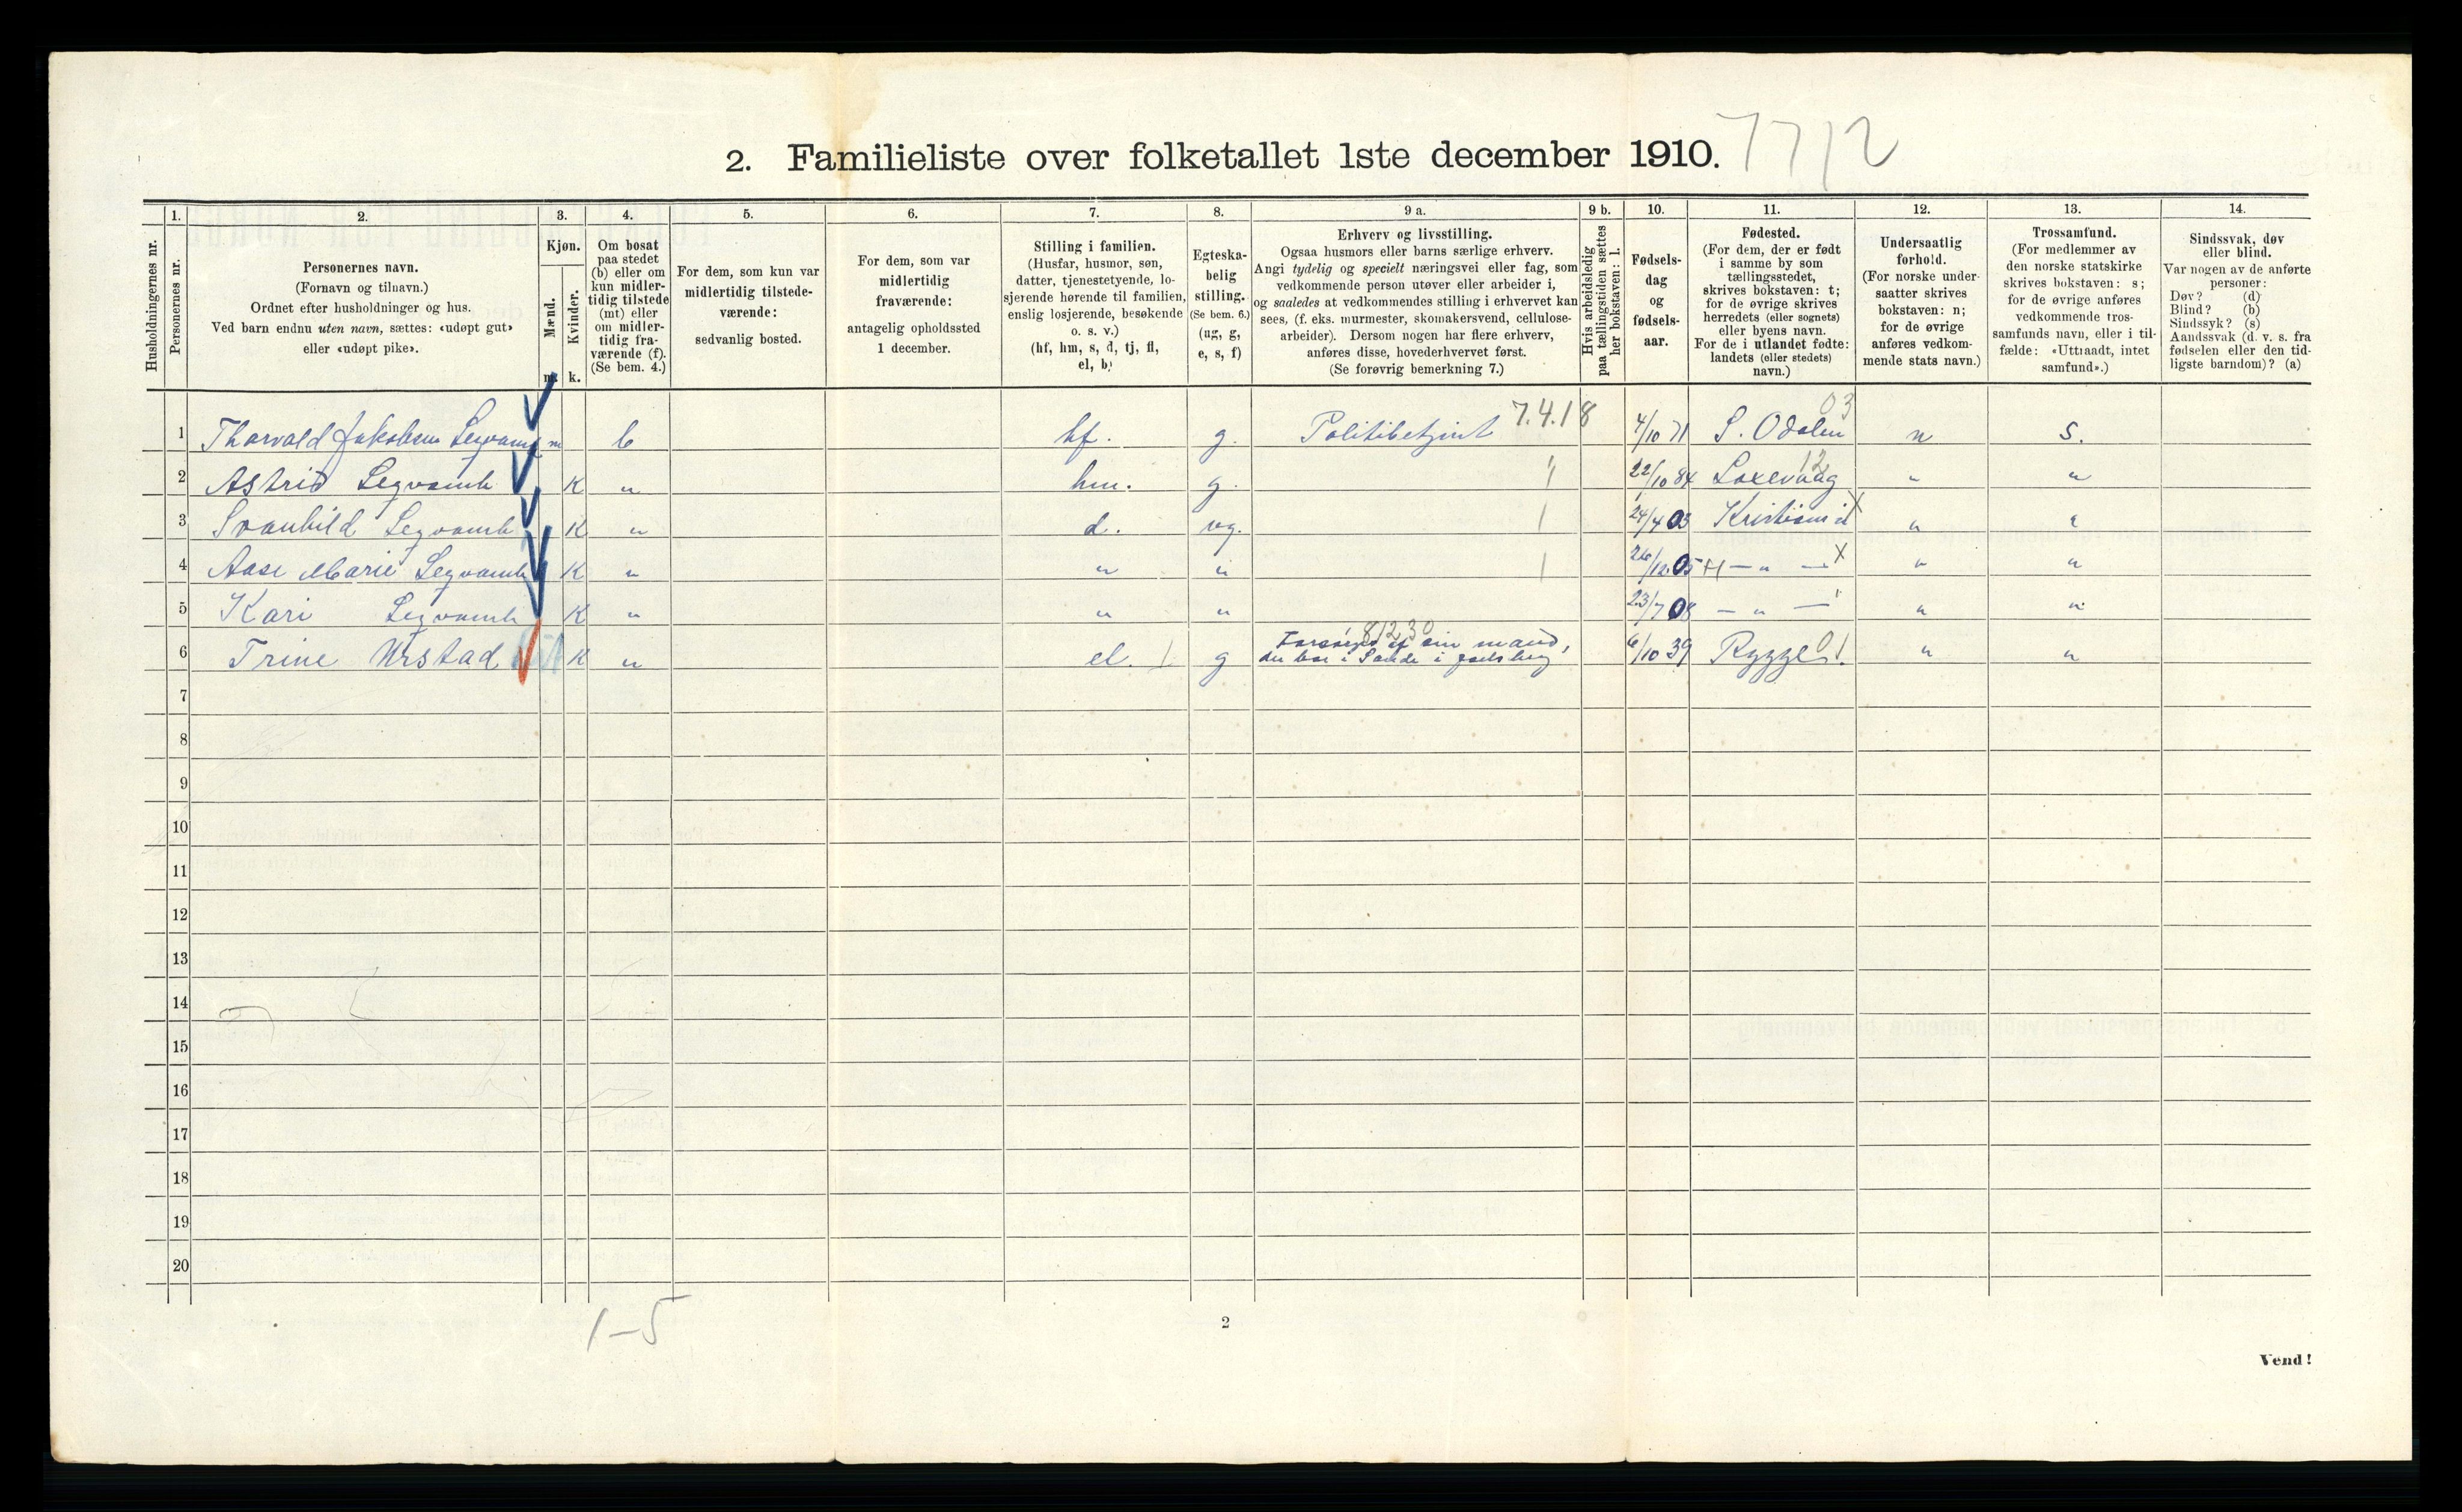 2. Familieliste over folketallet 1ste december 1910. 7712
1. 2. 3. 4. 5. 6. 7. 8. 9 a. 9 b. 10. 11. 12. 13. 14.
Husholdningernes nr.
Personernes nr.
Personernes navn.
(Fornavn og tilnavn.)
Ordnet efter husholdninger og hus.
Ved barn endnu uten navn, sættes: «udøpt gut»
eller «udøpt pike».
Kjøn.
Mænd.
Kvinder.
m. k.
Om bosat
paa stedet
(b) eller om
kun midler-
tidig tilstede
(mt) eller
om midler-
tidig fra-
værende (f).
(Se bem. 4.)
For dem, som kun var
midlertidig tilstede-
værende:
sedvanlig bosted.
For dem, som var
midlertidig
fraværende:
antagelig opholdssted
1 december.
Stilling i familien.
(Husfar, husmor, søn,
datter, tjenestetyende, lo-
sjerende hørende til familien,
enslig losjerende, besøkende
o. s. v.)
(hf, hm, s, d, tj, fl,
el, b)
Egteska-
belig
stilling.
(Se bem. 6.)
(ug, g,
e, s, f)
Erhverv og livsstilling.
Ogsaa husmors eller barns særlige erhverv.
Angi tydelig og specielt næringsvei eller fag, som
vedkommende person utøver eller arbeider i,
og saaledes at vedkommendes stilling i erhvervet kan
sees, (f. eks. murmester, skomakersvend, cellulose-
arbeider). Dersom nogen har flere erhverv,
anføres disse, hovederhvervet først.
(Se forøvrig bemerkning 7.)
Hvis arbeidsledig
paa tællingstiden sættes
her bokstaven: l.
Fødsels-
dag
og
fødsels-
aar.
Fødested.
(For dem, der er født
i samme by som
tællingsstedet,
skrives bokstaven: t;
for de øvrige skrives
herredets (eller sognets)
eller byens navn.
For de i utlandet fødte:
landets (eller stedets)
navn.)
Undersaatlig
forhold.
(For norske under-
saatter skrives
bokstaven: n;
for de øvrige
anføres vedkom-
mende stats navn.)
Trossamfund.
(For medlemmer av
den norske statskirke
skrives bokstaven: s;
for de øvrige anføres
vedkommende tros-
samfunds navn, eller i til-
fælde: «Uttraadt, intet
samfund».)
Sindssvak, døv
eller blind.
Var nogen av de anførte
personer:
Døv? (d)
Blind? (b)
Sindssyk? (s)
Aandssvak (d. v. s. fra
fødselen eller den tid-
ligste barndom)? (a)
1 Thorvald Jakobsen Legvamb m b hf. g. Politibetjent 7.4.18 4/10 71 S. Odalen 03 n s.
2 Astrid Legvamb K " hm. g. 22/10 84 Laxevaag 12 " "
3 Svanhild Legvamb K " d. ug. 24/4 03 Kristiania " "
4 Aase Marie Legvamb K " " " 26/12 05 — " — " "
5 Kari Legvamb K " " " 23/7 08 — " — " "
6 Trine Urstad K " el. g Forsørges af sin mand, 81230 6/10 39 Rygge 01. " "
der bor i Sande i
7
8
9
10
11
12
13
14
15
16
17
18
19
20
1–5
2
Vend!